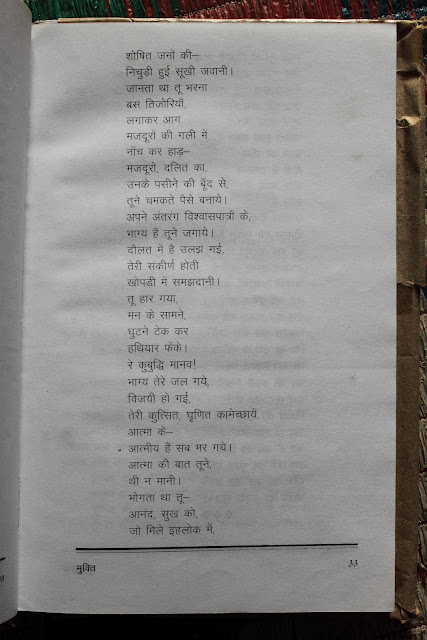 शोषित जनों की—
निचुड़ी हुई सूखी जवानी।
जानता था तू भरना
बस तिजोरियाँ,
लगाकर आग
मजदूरों की गली में
नोंच कर हाड़—
मजदूरों, दलित का,
उनके पसीने की बूँद से,
तूने चमकते पैसे बनाये।
अपने अंतरंग विश्वासपात्रों के,
भाग्य हैं तूने जगाये।
दौलत में है उलझ गई,
तेरी संकीर्ण होती
खोपड़ी में समझदानी।
तू हार गया,
मन के सामने,
घुटने टेक कर
हथियार फेंके।
रे कुबुद्धि मानव!
भाग्य तेरे जल गये,
विजयी हो गई,
तेरी कुत्सित, घृणित कामेच्छायें,
आत्मा के—
आत्मीय हैं सब मर गये।
आत्मा की बात तूने,
थी न मानी।
भोगता था तू—
आनंद, सुख को,
जो मिले इहलोक में,
मुक्ति 33